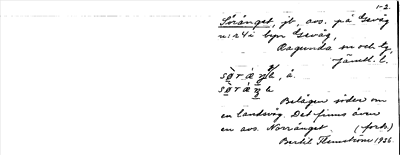 1-2.
Söränget, jt, avs. på Gevåg
n:r 4 i byn Gevåg,
Ragunda sn och tg,
Jämtl. l.
Belägen söder om
en landsväg. Det finns även
en avs. Norränget. (forts.)
Bertil Flemström 1936.